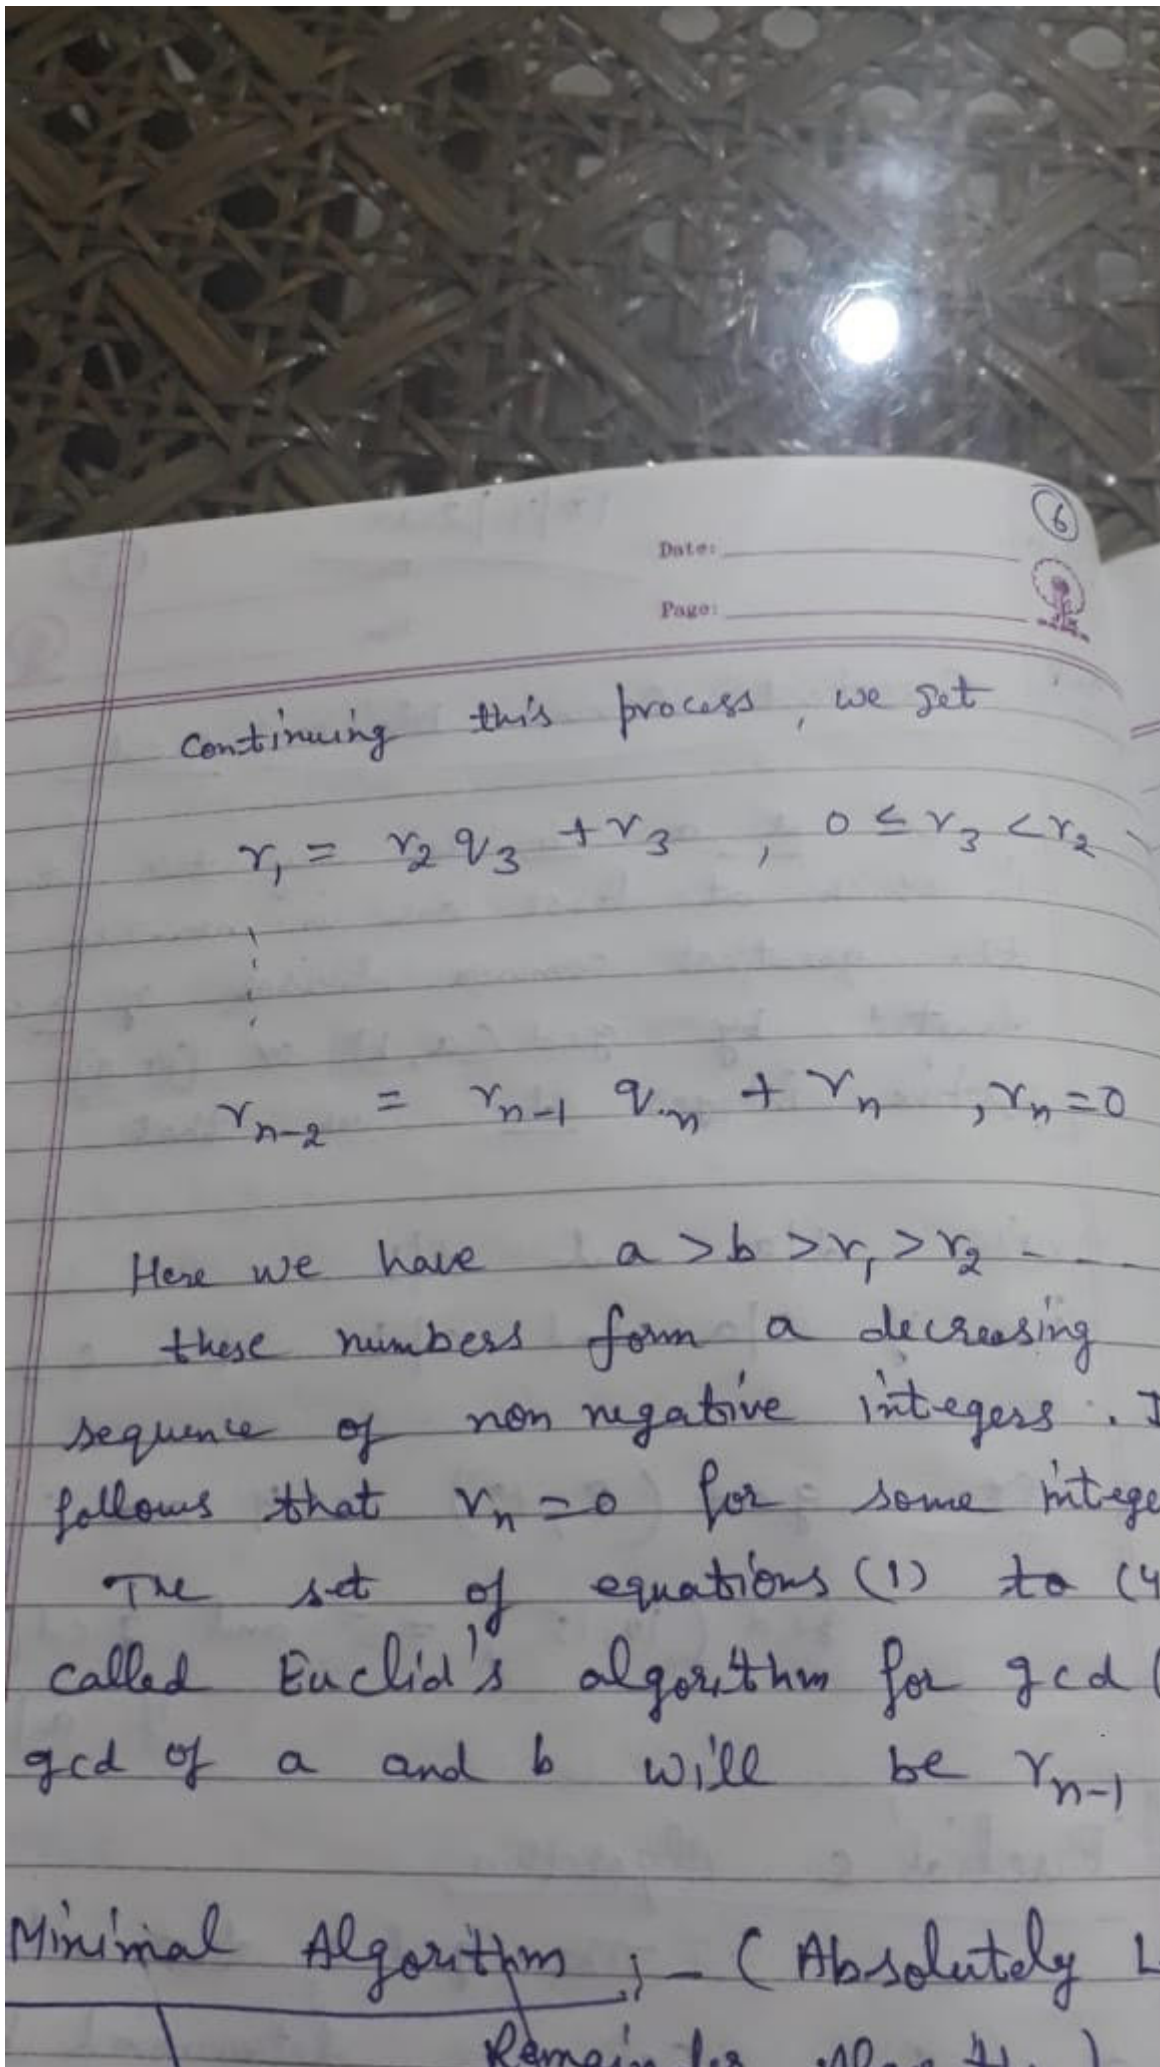 6
Date:
Page:
Continuing this process, we get
r₁ = r₂ q₃ + r₃ , 0 ≤ r₃ < r₂
rₙ₋₂ = rₙ₋₁ qₙ + rₙ , rₙ = 0
Here we have a > b > r₁ > r₂ - - -
these numbers form a decreasing
sequence of non negative integers.
follows that rₙ = 0 for some
The set of equations (1) to (4
called Euclid's algorithm for gcd (
gcd of a and b will be rₙ₋₁
Minimal Algorithm ; - ( Absolutely